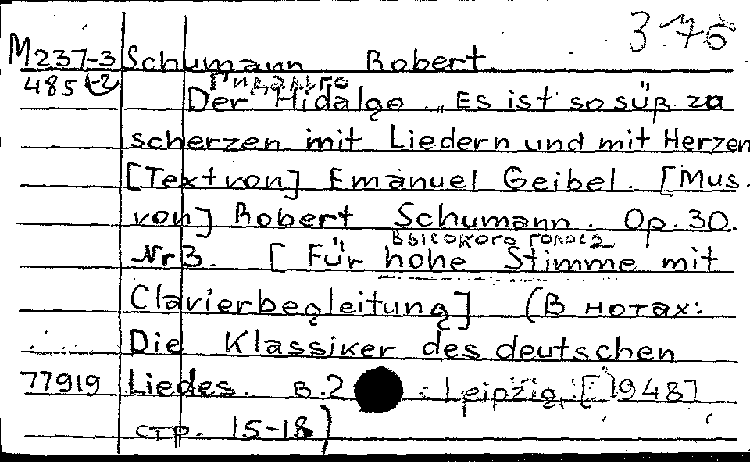 3.75
M237-3 Schumann Robert
485-2 Гидальго
Der Hidalgo „Es ist so süß zu
scherzen mit Liedern und mit Herzen
[Text von] Emanuel Geibel. [Mus.
von] Robert Schumann. Op. 30.
высокого голоса
Nr 3. [Für hohe Stimme mit
Clavierbegleitung] (В нотах:
Die Klassiker des deutschen
77919 Liedes. B.2 Leipzig, [1948]
стр. 15-18)